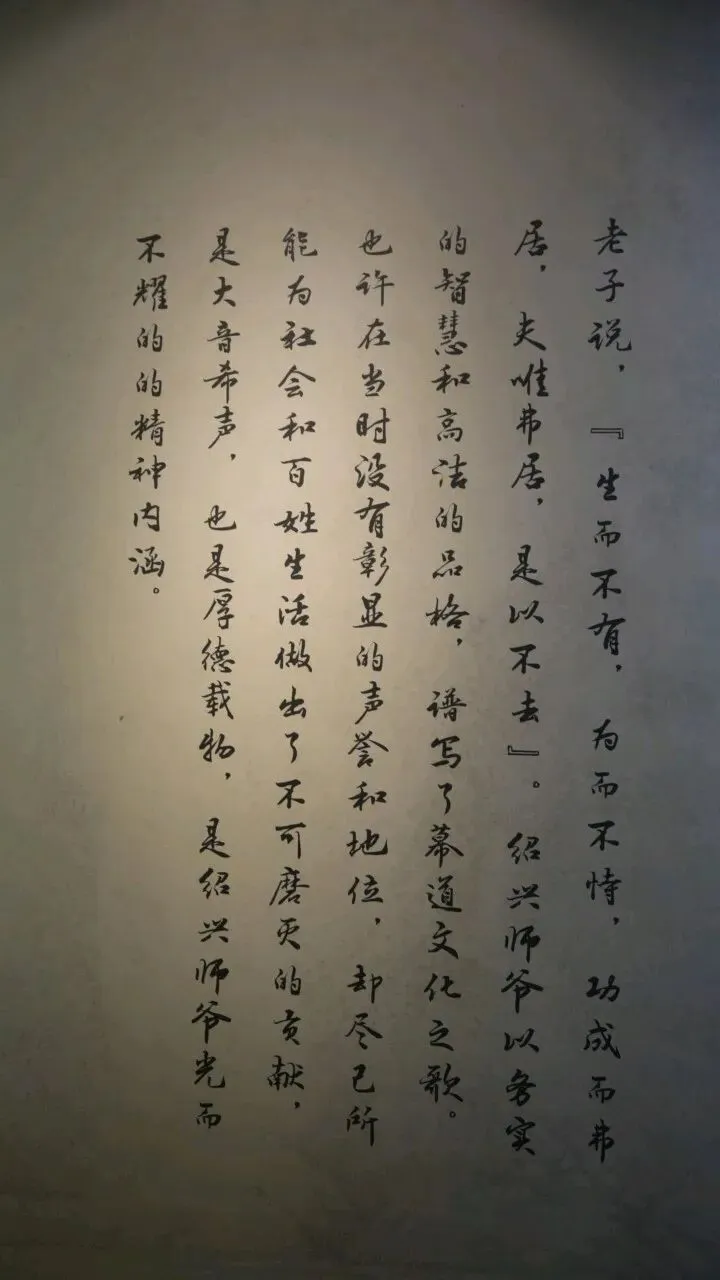 老子说，『生而不有，为而不恃，功成而弗
居，夫唯弗居，是以不去』。绍兴师爷以务实
的智慧和高洁的品格，谱写了幕道文化之歌。
也许在当时没有彰显的声誉和地位，却尽己所
能为社会和百姓生活做出了不可磨灭的贡献，
是大音希声，也是厚德载物，是绍兴师爷光而
不耀的的精神内涵。